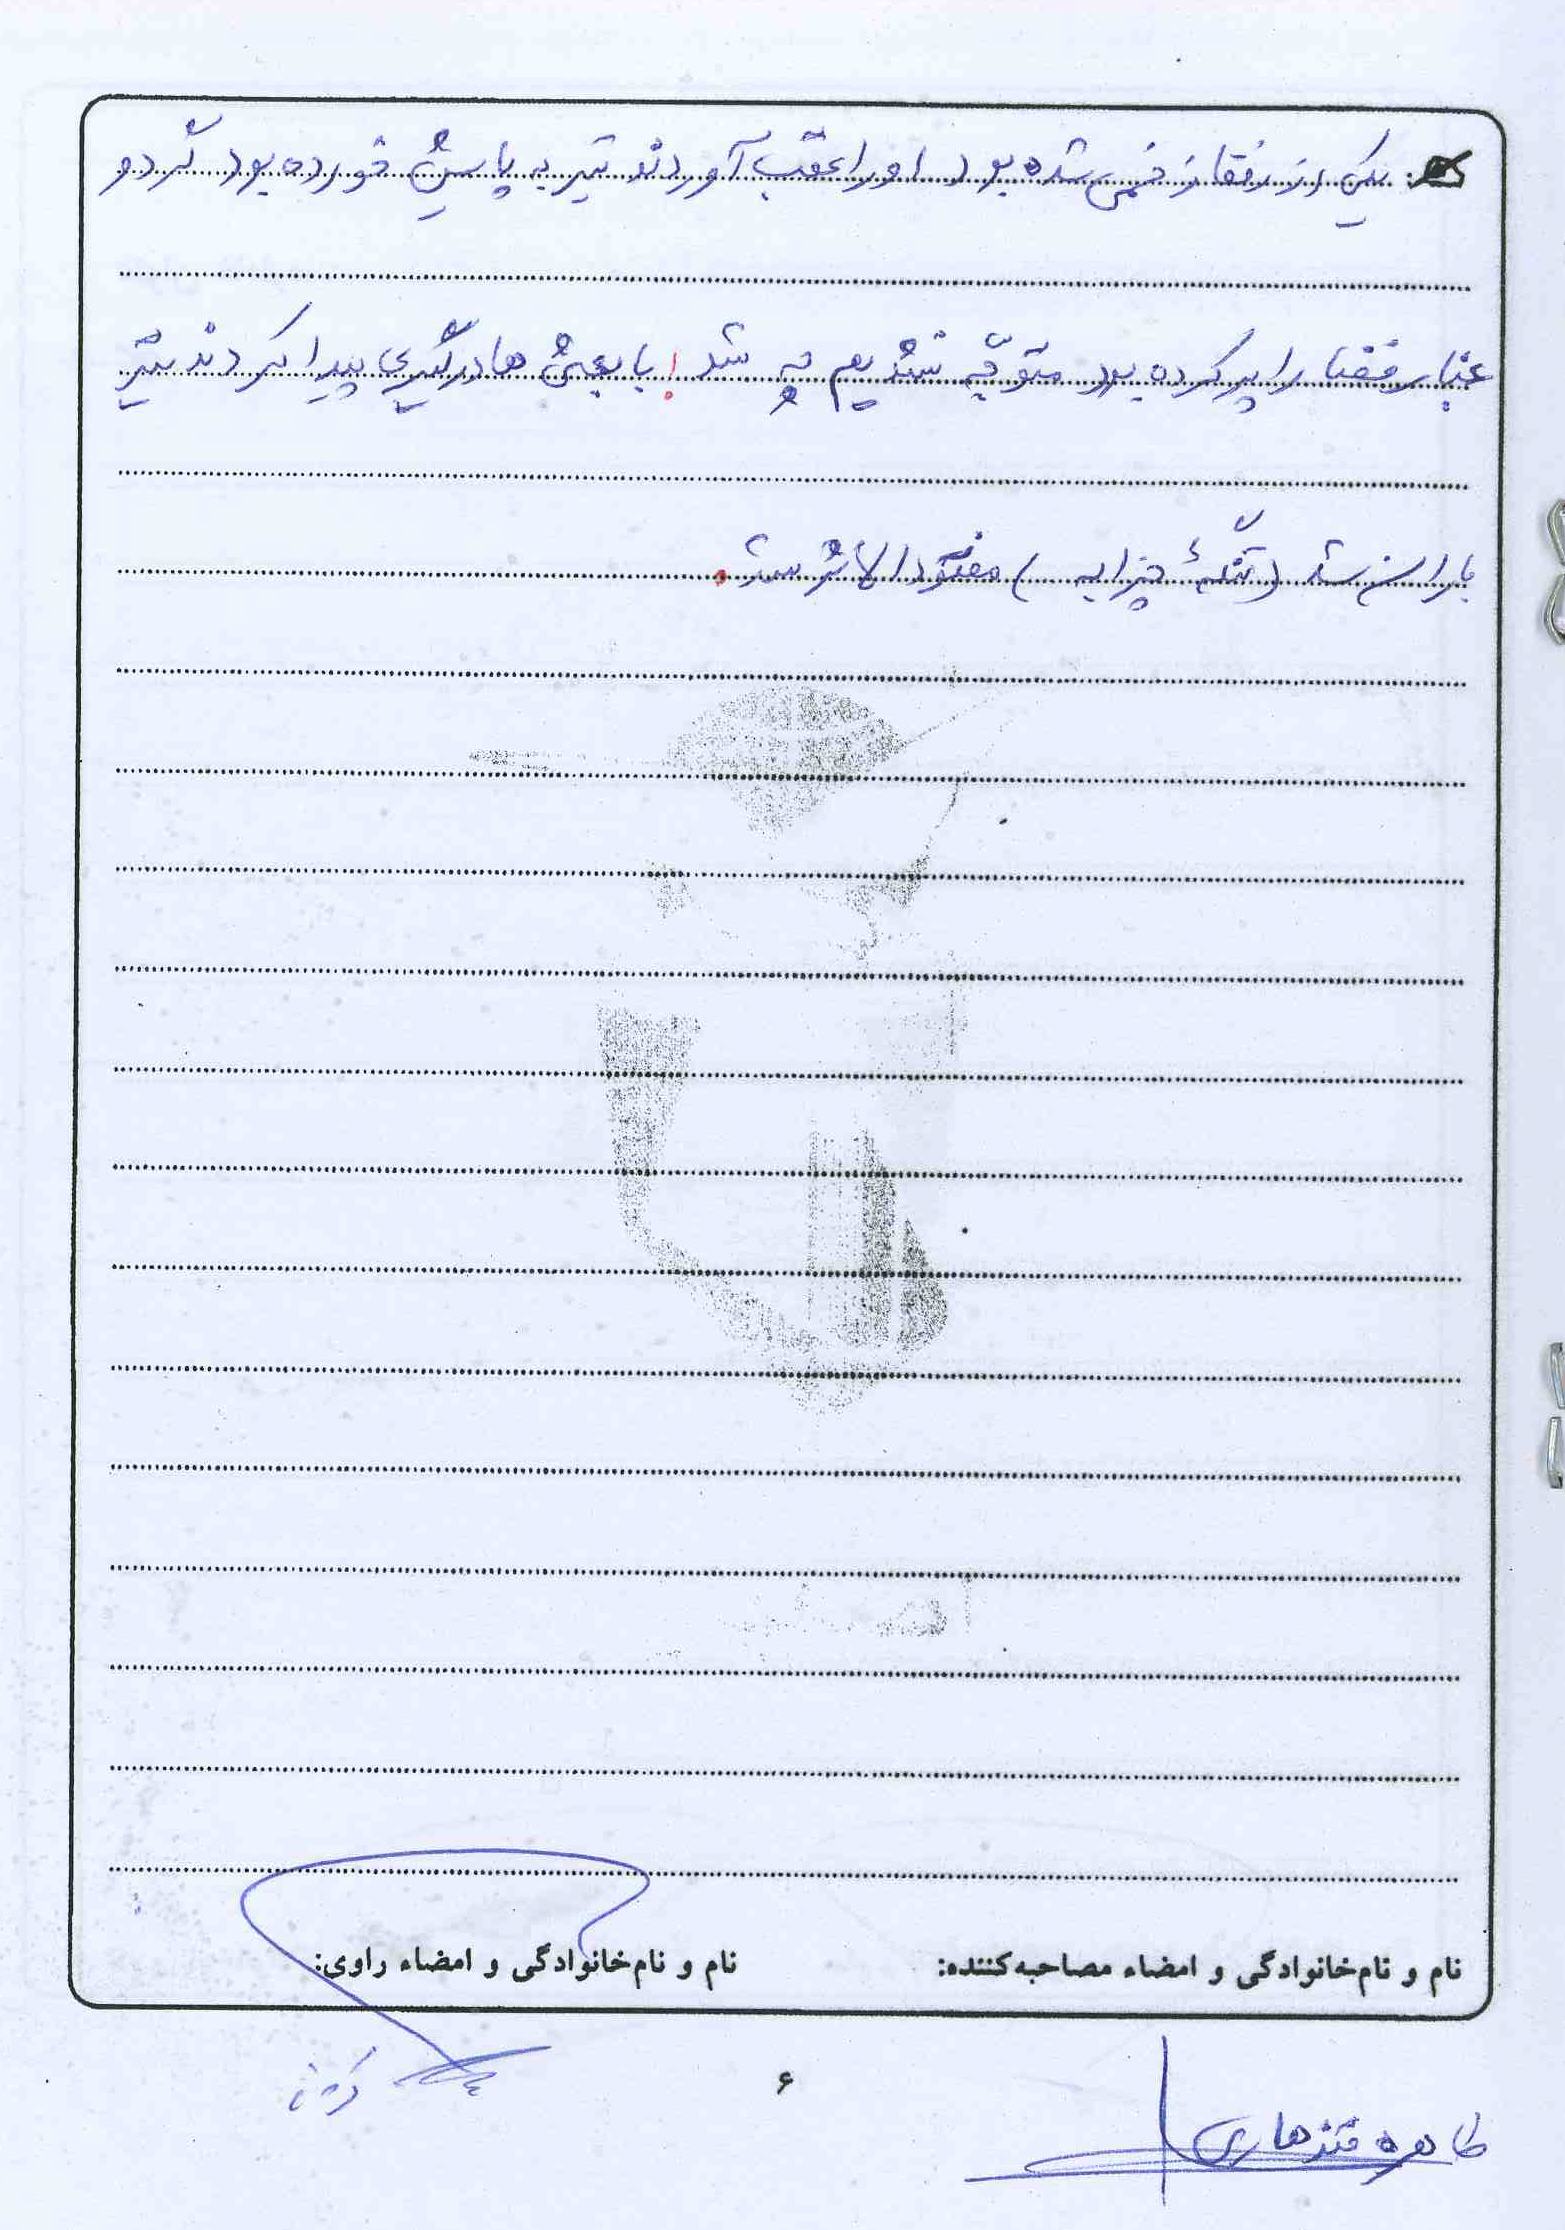 یکی از رفقا زخمی شده بود او را عقب آوردند تیر به پایش خورده بود گرد و
غبار فضا را پر کرده بود متوجّه نشدیم چه شد! با بعثی ها درگیری پیدا کردند تیر
باران شد (تنگّهٔ چزابه) مفقودالاثر شد.
نام و نام‌خانوادگی و امضاء مصاحبه‌کننده: نام و نام‌خانوادگی و امضاء راوی:
۶
طاهره قندهاری